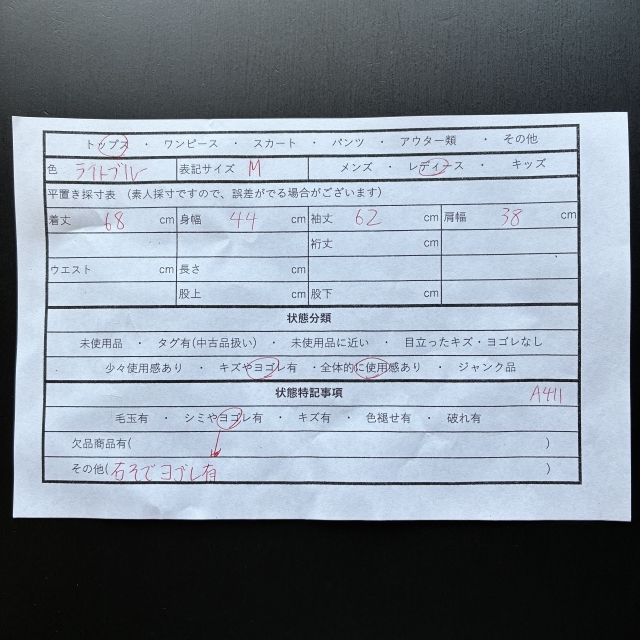 トップス ・ ワンピース ・ スカート ・ パンツ ・ アウター類 ・ その他
色 ライトブルー 表記サイズ M メンズ ・ レディース ・ キッズ
平置き採寸表 (素人採寸ですので、誤差がでる場合がございます)
着丈 68 cm 身幅 44 cm 袖丈 62 cm 肩幅 38 cm
裄丈 cm
ウエスト cm 長さ cm
股上 cm 股下 cm
状態分類
未使用品 ・ タグ有(中古品扱い) ・ 未使用品に近い ・ 目立ったキズ・ヨゴレなし
少々使用感あり ・ キズやヨゴレ有 ・全体的に使用感あり ・ ジャンク品
状態特記事項 A411
毛玉有 ・ シミやヨゴレ有 ・ キズ有 ・ 色褪せ有 ・ 破れ有
欠品商品有( )
その他(右そでヨゴレ有 )